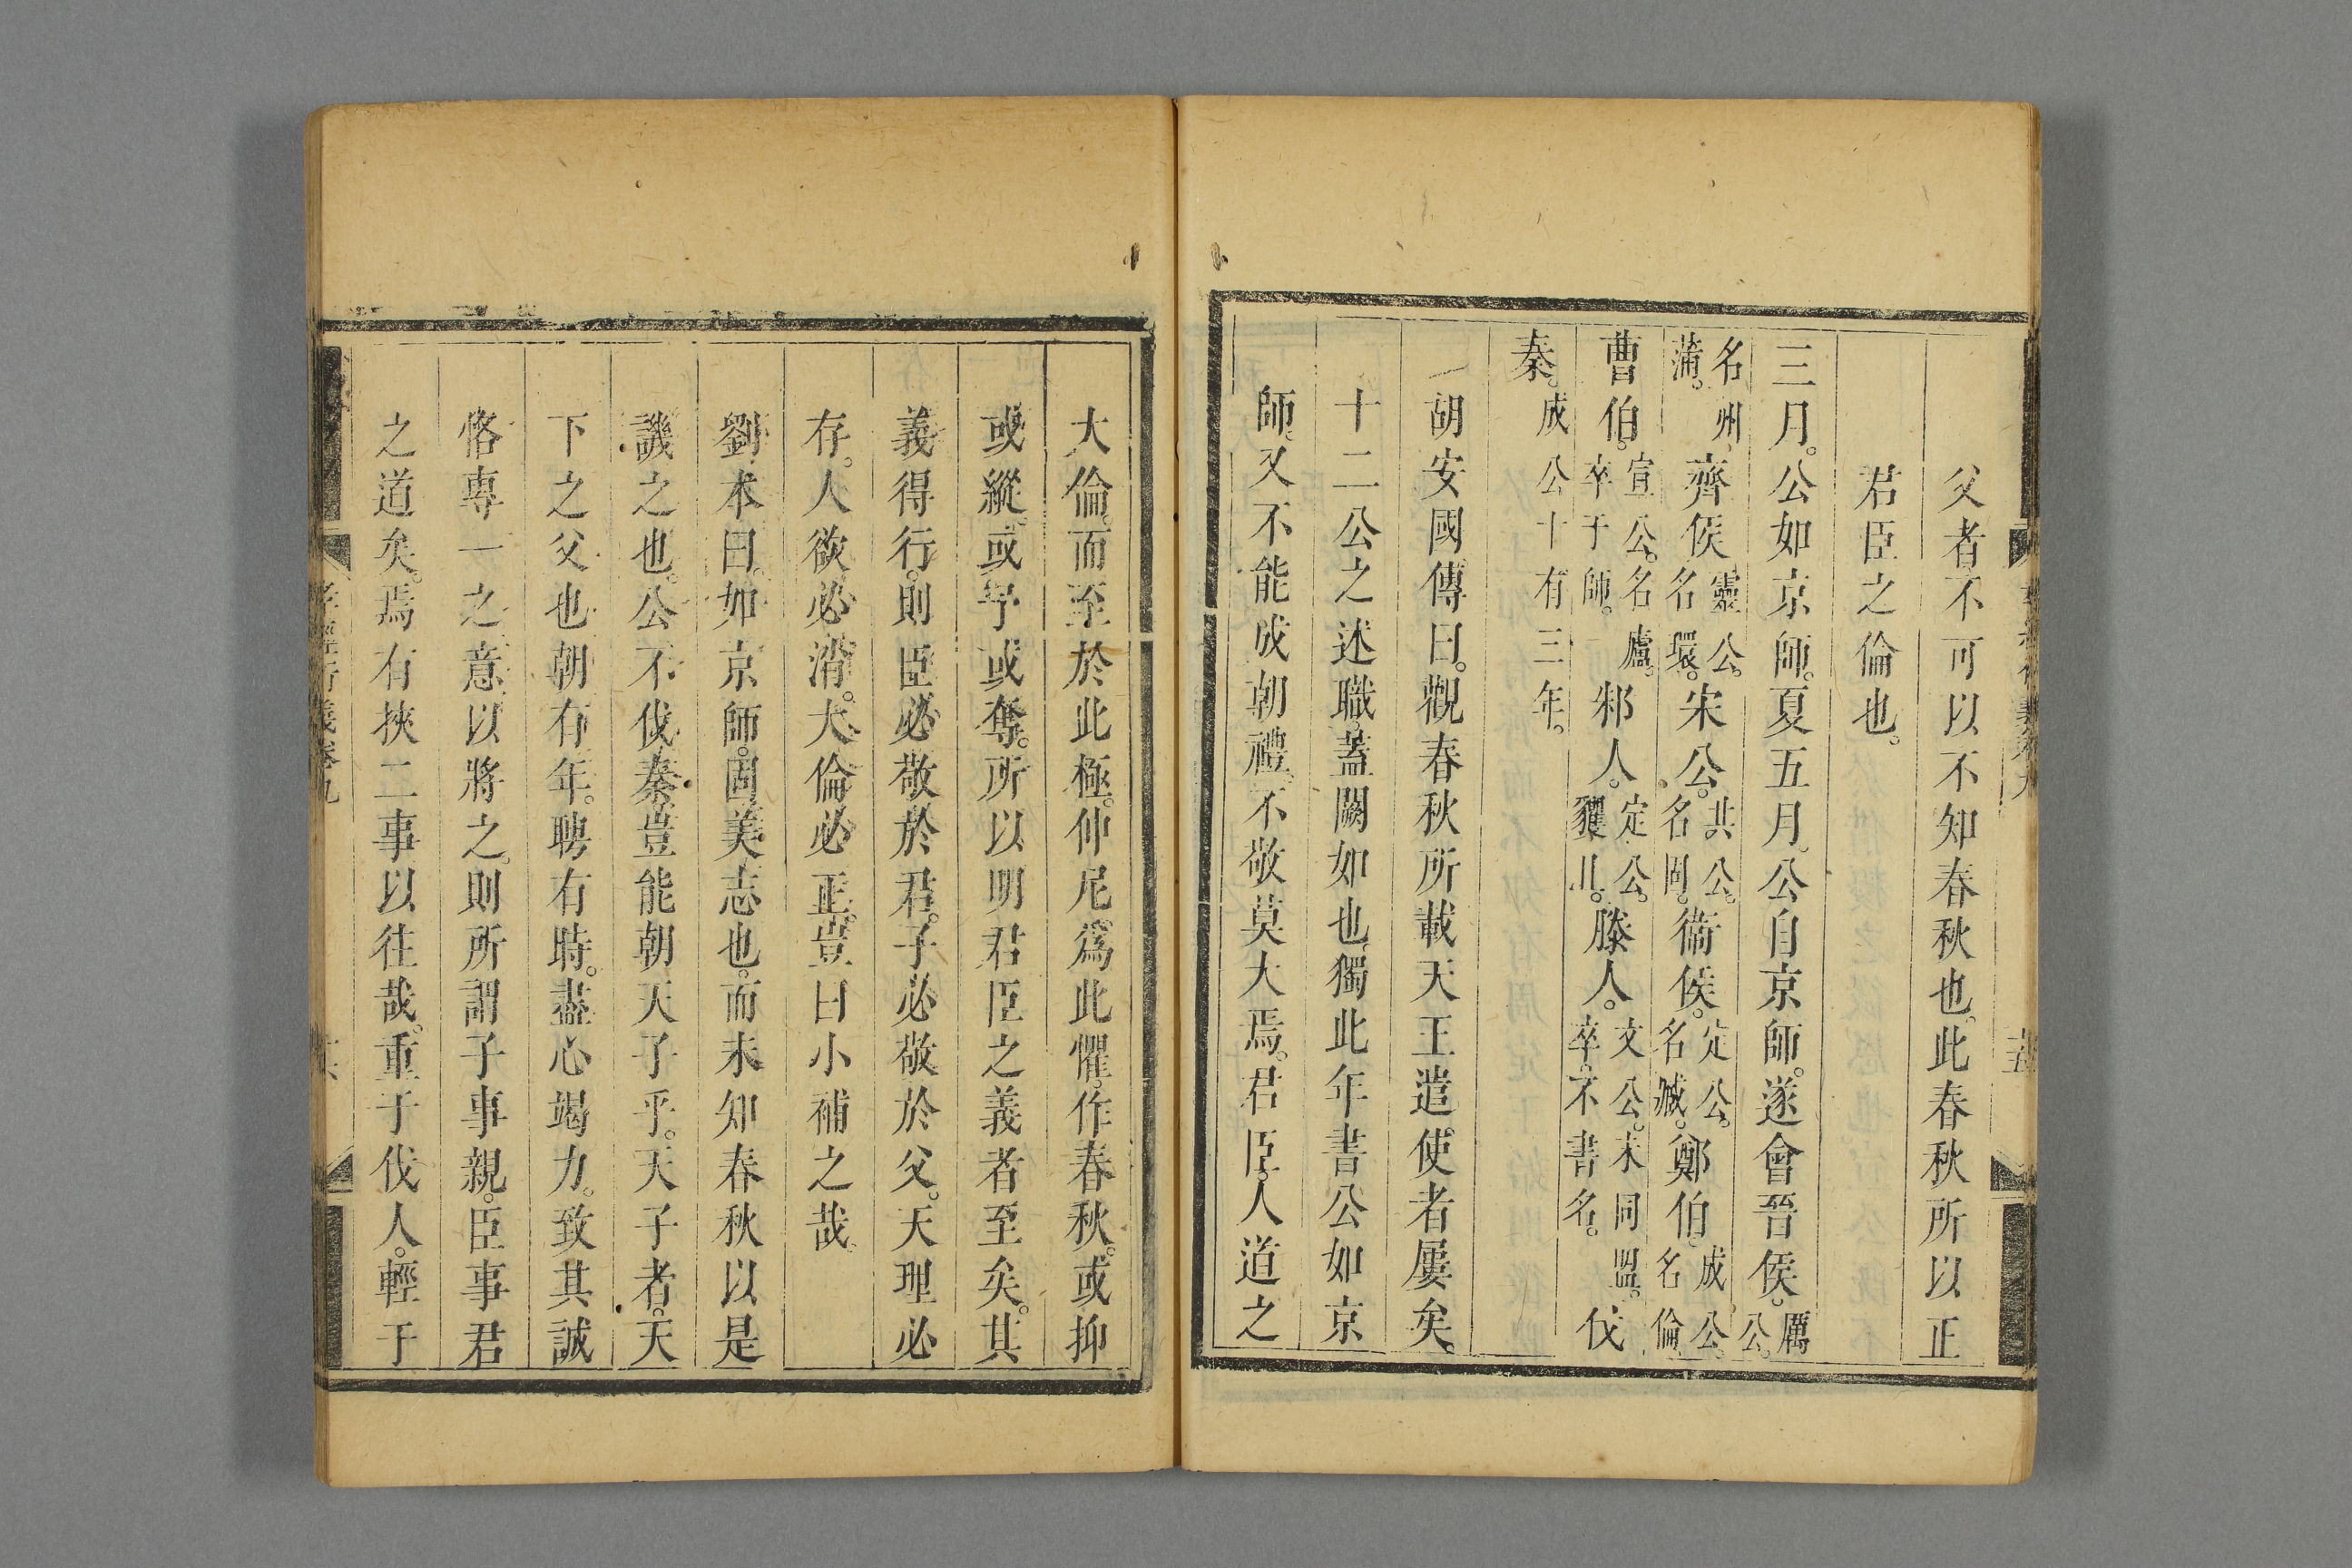 父者不可以不知春秋也。此春秋所以正
君臣之倫也。
三月。公如京師。夏五月。公自京師。遂會晉侯。厲公。
名州蒲。齊侯靈公。名環。宋公。共公。名固。衞侯。定公。名臧。鄭伯。成公。名倫
曹伯。宣公。名廬。卒于師。邾人。定公。貜且。滕人。文公。未同盟。卒。不書名。伐
秦。成公十有三年。
胡安國傳曰。觀春秋所載天王遣使者屢矣。
十二公之述職。蓋闕如也。獨此年書公如京
師。又不能成朝禮。不敬莫大焉。君臣。人道之
大倫。而至於此極。仲尼爲此懼。作春秋。或抑
或縱。或予或奪。所以明君臣之義者至矣。其
義得行。則臣必敬於君。子必敬於父。天理必
存。人欲必消。大倫必正。豈曰小補之哉。
劉本曰。如京師。固美志也。而未知春秋以是
譏之也。公不伐秦。豈能朝天子乎。天子者。天
下之父也朝有年。聘有時。盡心竭力。致其誠
恪專一之意以將之。則所謂子事親。臣事君
之道矣。焉有挾二事以往哉。重于伐人。輕于
孝經衍義卷九